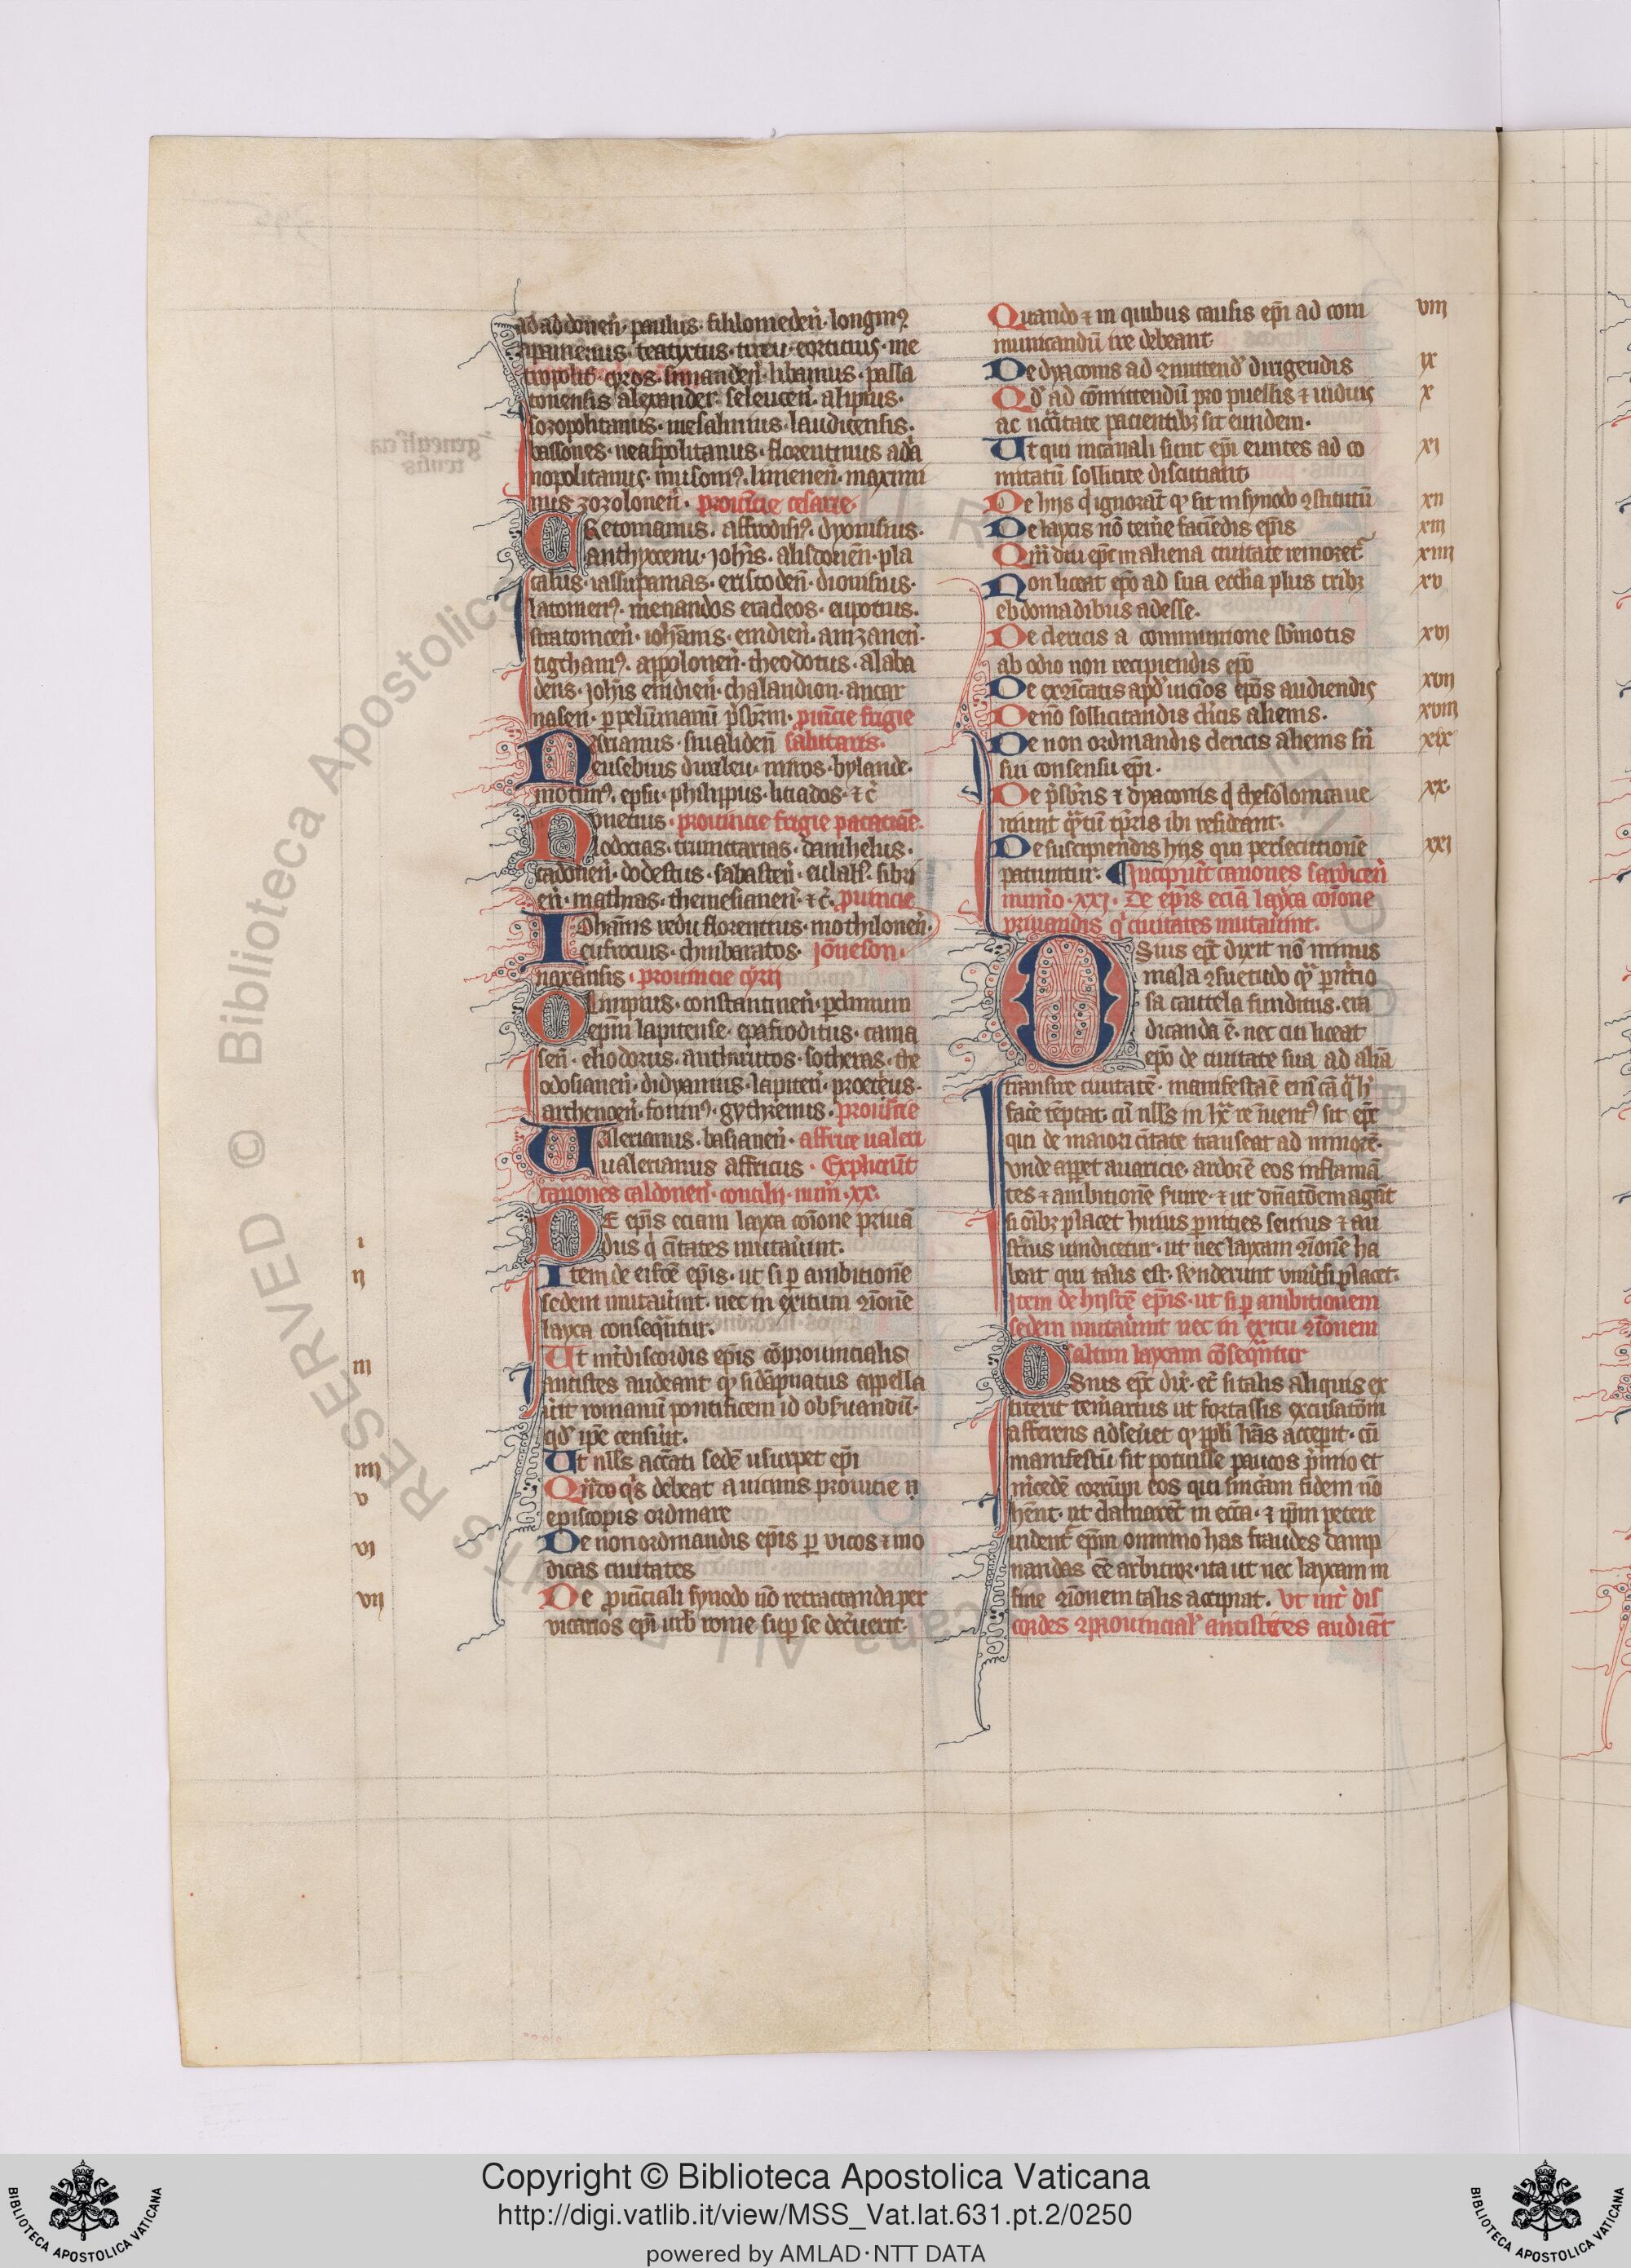 ad addonen̄· paulus· filomeden̄· longinꝰ
apamenus· teatixtus· tireu· eorticius· me
tropolis· cyros· limanden̄· libanius· passa
tonensis alexander· seleucen̄· alipius·
sozopolitanus· mesalinius· laudicensis·
bassones· neaspolitanus· florentinus ada
nopolitanus· musomꝰ· limenen̄· maximi
nus zozolonen̄· prouīcie cesarie·
CRetomanus· affrodisꝰ· dyonisius·
anthyocenu· joh̄is· aliscouen̄· pla
calus· iassupamas· eristoden̄· dionisius·
latomenꝰ· menandos eradeos· eupotius·
stratomcen̄· ioh̄anis· emdien̄· amzanen̄·
tigrhamꝰ· appolonen̄· theodotus· alaba
dens· joh̄is emdien̄· chalandion· ancar
nasen̄· p̱ pelumanū p̄sb̄rm· ꝓuīcie frigie
NArianus· sinaliden̄ salutaris·
eusebius dualeu· miros· bylande·
motinꝰ· epsu· philippus· liciados· ⁊ c̄
NVnetius· prouincie frigie pacaciāe·
lodocias· trinittarias· danihelus·
cadonen̄· dodestus· sabasten̄· eulalꝰ· sibli
en̄· mathias· themesianen̄· ⁊c̄· ꝓuincie
IOhan̄is redu florentius· mothilonen̄·
eufrocius· chinbaratos· jōueson·
naxansis· prouincie cyrij
OLimpius· constantinen̄· p̱dmum
ep̄m lapitense· epafroditus· cama
sen̄· eliodorus· antharittos· sotheras· the
odosianen̄· didyamus· lapiten̄· proetreus·
archenoen̄· foninꝰ· gythremis· prouīcie
VAlerianus· basianen̄· affrice ualeri
ualerianus affricus· Expliciūt
canones caldonen̄· concilij· num̄· xx·
DE ep̄is eciam layca cōione priuā
dis q̄ ciuitates mutauīnt.
i
ii
Item de eisdē ep̄is· ut si ꝑ ambitionē
sedem mutauīnt· nec in exitum ꝯionē
layca conseq̄ntur·
iii
Ut int̄ discordis ep̄is cōprouincialis
antistes audeant qꝫ si dāpnatus appella
ūit romanū pontificem id obseruandū·
qd̄ ip̄e censuīt·
iiii
Ut nll̄s acc̄ati sedē usurpet ep̄i
v
Qn̄do q̄s debeat a uicinis prouīcie n̄
episcopis ordinare
vi
De non ordinandis ep̄is ꝑ vicos ⁊ mo
dicas ciuitates
vii
De ꝓuīciali synodo nō retractanda per
vicarios ep̄i urb̄ rome sup̱ se decreuerit·
Quando ⁊ in quibus causis ep̄i ad com
viii
municandū ire debeant
De dyaconis ad ꝯmittend̄ dirigendis
ix
Qd̄ ad cōmittendū pro puellis ⁊ uiduis
x
ac nc̄citate pacientibꝫ sit eundem·
Ut qui incanali sunt ep̄i euntes ad co
xi
mitatū sollicite discutiant
De hijs q̄ ignorāt qꝫ sit in synodo ꝯstitutū
xii
De laycis nō tem̄e faciēdis ep̄is
xiii
Qm̄ diu ep̄c in aliena ciuitate remoret̄
xiiii
Non liceat ep̄o ad sua ecc̄lia plus tribꝫ
xv
ebdomadibus adesse·
De clericis a communione sb̄motis
xvi
ab odio non recipiendis ep̄o
De exc̄itatis apd̄ uicīos ep̄os audiendis
xvii
De nō sollicitandis cl̄icis alienis·
xviii
De non ordinandis clericis alienis sn̄
xix
sui consensu ep̄i·
De p̄sb̄ris ⁊ dyaconis q̄ thesolonicaue
xx
niunt q̄tū tp̄ris ibi resideant·
De suscipiendis hijs qui persecutionē
xxi
patiuntur· ¶ Incipiūt canones sardicen̄
numō· xxi· De ep̄is eciā layca cōione
priuandis q̄ ciuitates mutauīnt·
OSius ep̄c dixit nō minus
mala ꝯsuetudo q̄ꝫ p̱nitio
sa cautela funditus· era
dicanda ē· nec cui liceat
ep̄o de ciuitate sua ad aliā
transire ciuitatē· manifesta ē eni cā q̄ h̄
fac̄e tēptat· cū nll̄s in hac re īuentꝰ sit ep̄c
qui de maiori cītate transeat ad minorē·
Unde appet auaricie· ardorē eos inflamā
tes ⁊ ambitionē suire· ⁊ ut dn̄atōem agāt
si oībꝫ placet huius p̱nities seuius ⁊ au
sterius uindicetur· ut nec laycam ꝯionē ha
beat qui talis est· Rn̄derunt vniūsi placet·
Item de hijsdē ep̄is· ut si ꝑ ambitionem
sedem mutauīnt nec in exitu ꝯionem
saltim laycam cōseq̄ntur
OSius ep̄c dix̄· et̄ si talis aliquis ex
titerit tem̄arius ut fortassis excusatōem
afferens adseuet qꝫ pp̄li līas accepīt· cū
manifestū sit potuisse paucos p̄mio et
m̄cedē corrūpi eos qui sinc̄am fidem nō
hēnt· ut clamarēt in ecc̄a· ⁊ ip̄m petere
uident̄ ep̄m omnino has fraudes damp
nandas ēē arbitror· ita ut nec laycam in
fine ꝯionem talis accipiat· Ut int̄ dis
cordes ꝯprouincial̄ antistites audiāt
Copyright © Biblioteca Apostolica Vaticana
http://digi.vatlib.it/view/MSS_Vat.lat.631.pt.2/0250
powered by AMLAD·NTT DATA
BIBLIOTECA APOSTOLICA VATICANA
BIBLIOTECA APOSTOLICA VATICANA